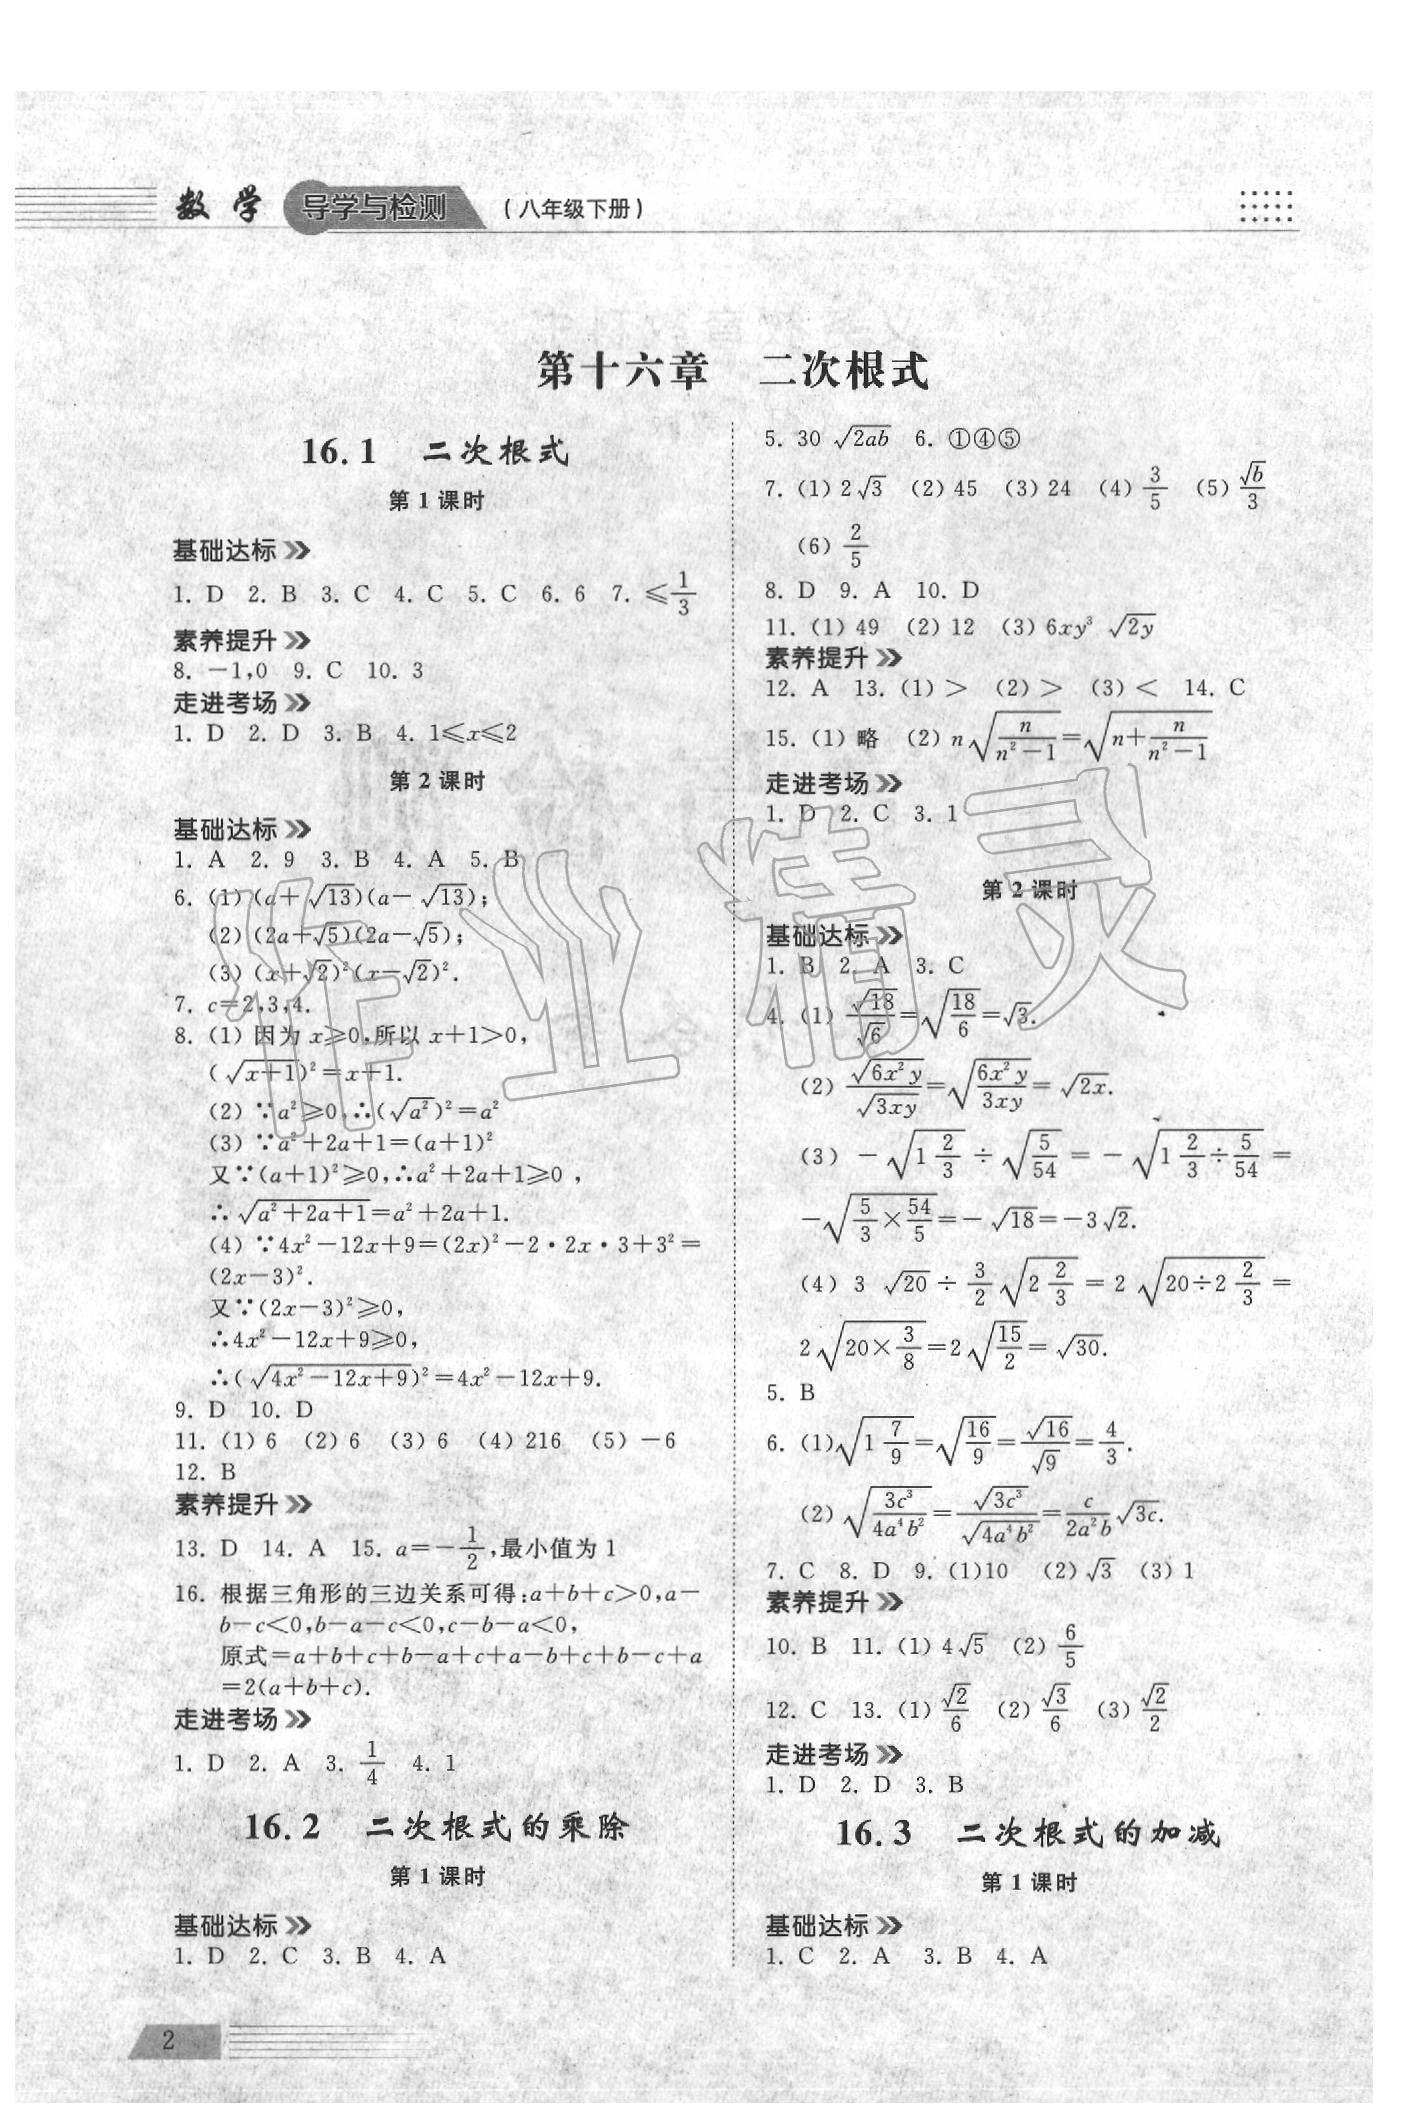 数 学 导学与检测 (八年级下册)
第十六章 二次根式
16.1 二次根式
第1课时
基础达标
1. D 2. B 3. C 4. C 5. C 6. 6 7. ≤1/3
素养提升
8. -1,0 9. C 10. 3
走进考场
1. D 2. D 3. B 4. 1≤x≤2
第2课时
基础达标
1. A 2. 9 3. B 4. A 5. B
6. (1)(a+√13)(a-√13);
(2)(2a+√5)(2a-√5);
(3)(x+√2)²(x-√2)².
7. c=2,3,4.
8. (1)因为 x≥0,所以 x+1>0,
(√(x+1))²=x+1.
(2)∵a²≥0,∴(√(a²))²=a²
(3)∵a²+2a+1=(a+1)²
又∵(a+1)²≥0,∴a²+2a+1≥0,
∴√(a²+2a+1)=a²+2a+1.
(4)∵4x²-12x+9=(2x)²-2·2x·3+3²=
(2x-3)².
又∵(2x-3)²≥0,
∴4x²-12x+9≥0,
∴(√(4x²-12x+9))²=4x²-12x+9.
9. D 10. D
11. (1)6 (2)6 (3)6 (4)216 (5)-6
12. B
素养提升
13. D 14. A 15. a=-1/2,最小值为1
16. 根据三角形的三边关系可得:a+b+c>0,a-
b-c<0,b-a-c<0,c-b-a<0,
原式=a+b+c+b-a+c+a-b+c+b-c+a
=2(a+b+c).
走进考场
1. D 2. A 3. 1/4 4. 1
16.2 二次根式的乘除
第1课时
基础达标
1. D 2. C 3. B 4. A
5. 30 √(2ab) 6. ①④⑤
7. (1)2√3 (2)45 (3)24 (4)3/5 (5)√b/3
(6)2/5
8. D 9. A 10. D
11. (1)49 (2)12 (3)6xy³ √(2y)
素养提升
12. A 13. (1)> (2)> (3)< 14. C
15. (1)略 (2)n√(n/(n²-1))=√(n+n/(n²-1))
走进考场
1. D 2. C 3. 1
第2课时
基础达标
1. B 2. A 3. C
4. (1)√18/√6=√(18/6)=√3.
(2)√(6x²y)/√(3xy)=√(6x²y/3xy)=√(2x).
(3)-√(1 2/3)÷√(5/54)=-√(1 2/3÷5/54)=
-√(5/3×54/5)=-√18=-3√2.
(4)3√20÷3/2√(2 2/3)=2√(20÷2 2/3)=
2√(20×3/8)=2√(15/2)=√30.
5. B
6. (1)√(1 7/9)=√(16/9)=√16/√9=4/3.
(2)√(3c³/4a⁴b²)=√(3c³)/√(4a⁴b²)=c/2a²b√(3c).
7. C 8. D 9. (1)10 (2)√3 (3)1
素养提升
10. B 11. (1)4√5 (2)6/5
12. C 13. (1)√2/6 (2)√3/6 (3)√2/2
走进考场
1. D 2. D 3. B
16.3 二次根式的加减
第1课时
基础达标
1. C 2. A 3. B 4. A
作业精灵
2